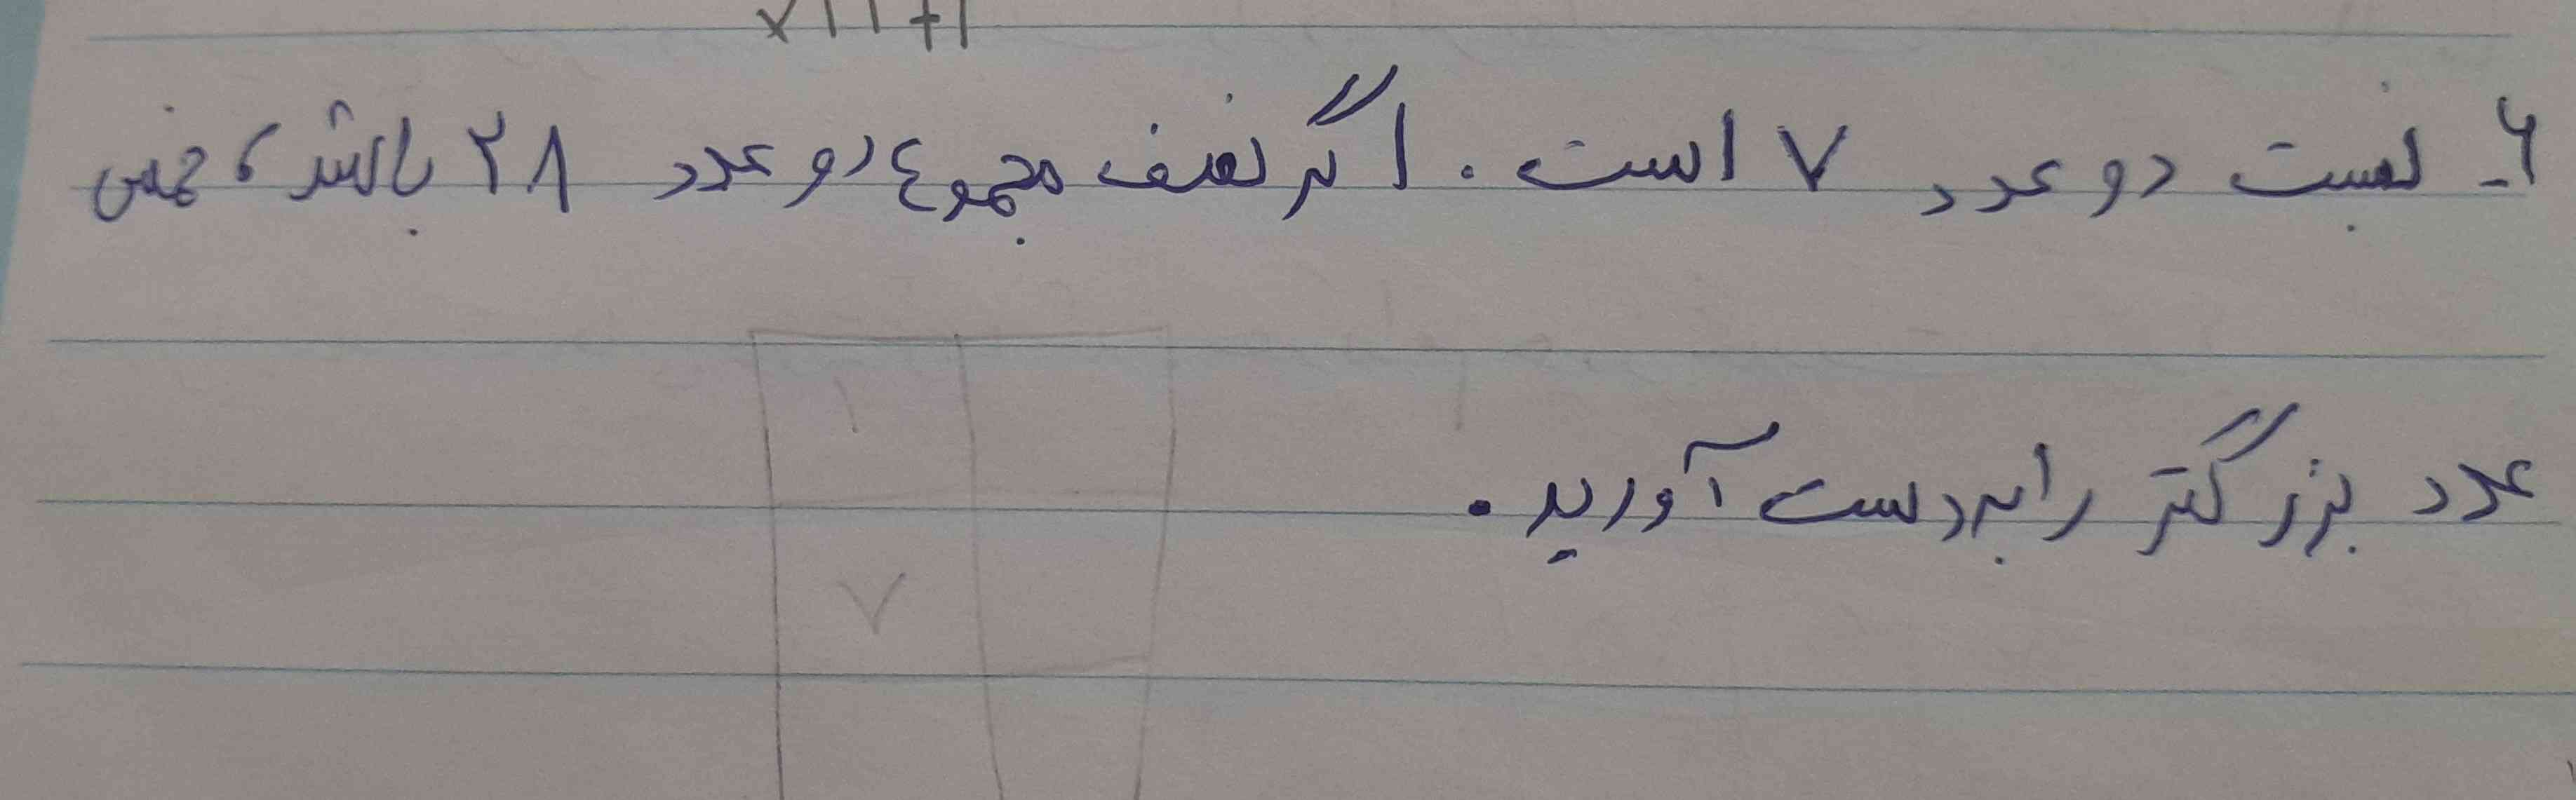 ۶ـ نسبت دو عدد ۷ است. اگر نصف مجموع دو عدد ۲۸ باشد، خمس
عدد بزرگتر را به دست آورید.
۱
۷